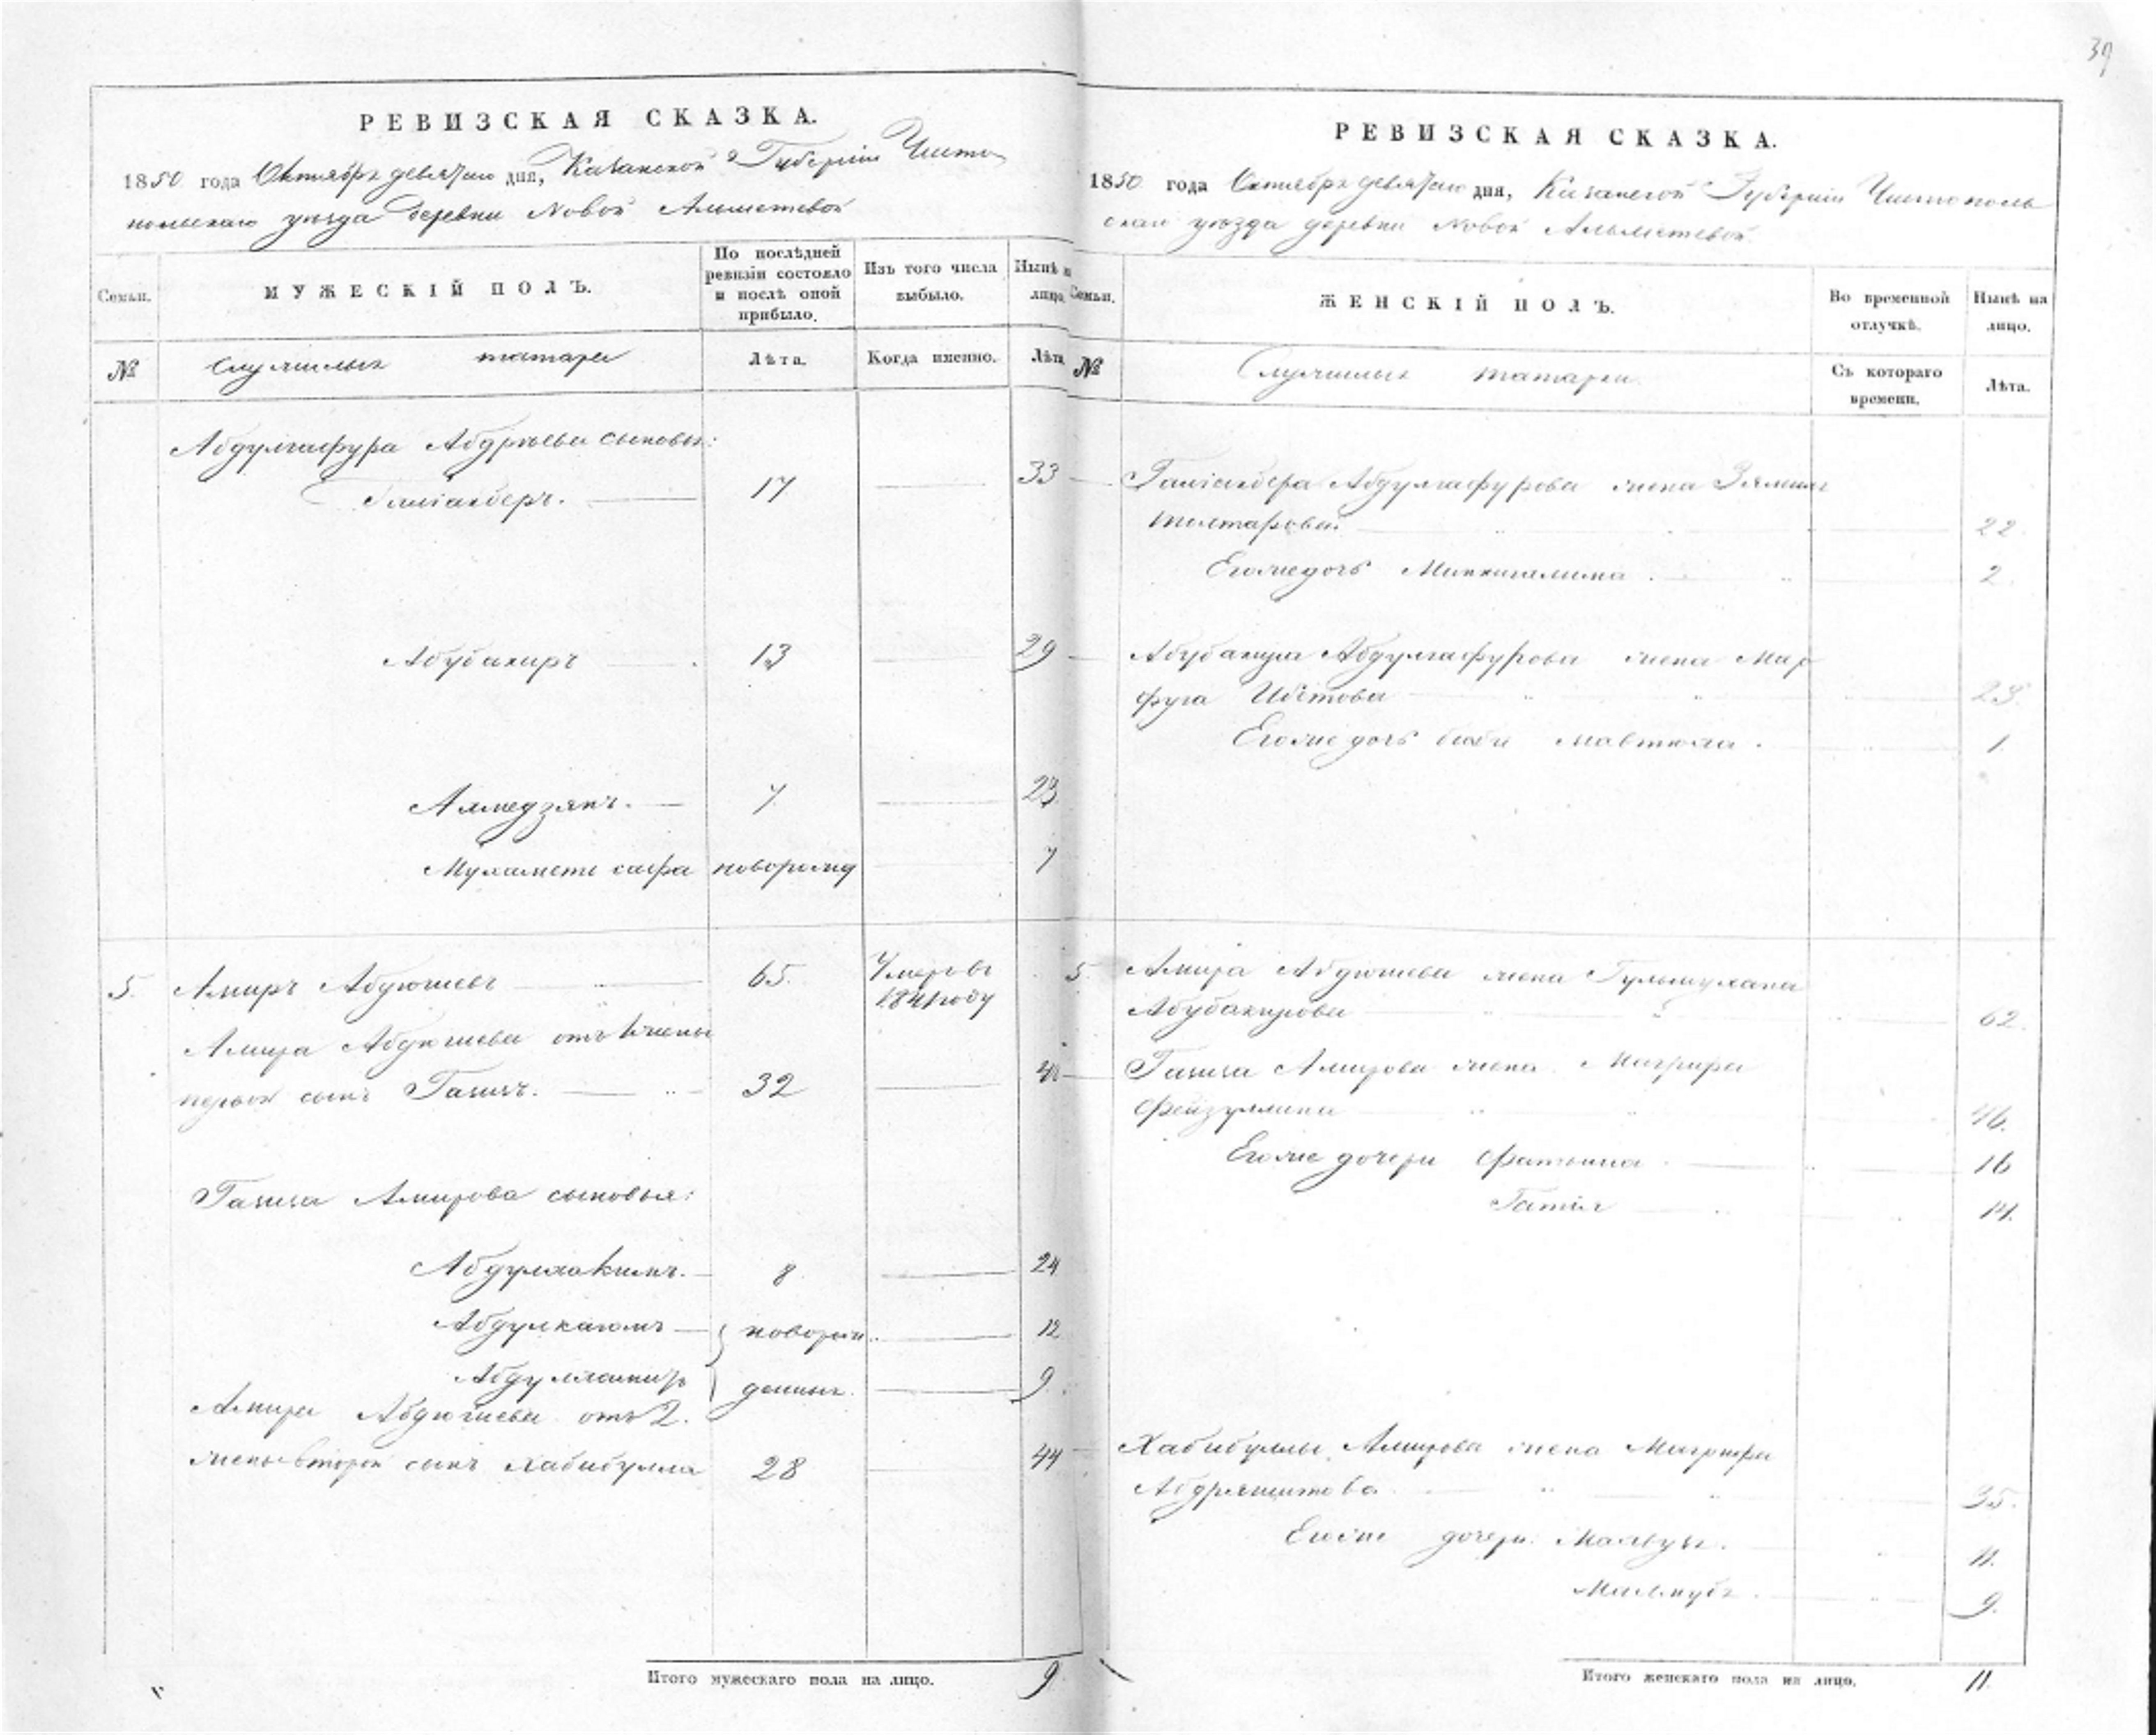 39
РЕВИЗСКАЯ СКАЗКА.
1850 года Октября девятаго дня, Казанской Губернiи Чисто
польскаго уѣзда деревни Новой Альметевой
Семьи.
МУЖЕСКIЙ ПОЛЪ.
По послѣдней
ревизiи состояло
и послѣ оной
прибыло.
Изъ того числа
выбыло.
Нынѣ н
лицо.
№
Служилых татаръ
Лѣта.
Когда именно.
Лѣта
Абдулгафура Абдрѣева сыновья:
Галiакберъ. 17 33
Абубакиръ 13 29
Ахмедзянъ. 7 23
Мухаметъ сафа новорожд 7
5. Амиръ Абдюшевъ 65. Умеръ въ
1841 году
Амира Абдюшева отъ 1 жены
первой сынъ Газизъ. 32 48
Газиза Амирова сыновья:
Абдулхакимъ. 8 24
Абдулкаюмъ новорож 12
Абдулшакиръ денныя. 9
Амира Абдюшева отъ 2.
жены второй сынъ Хабибулла 28 44
Итого мужескаго пола на лицо. 9
РЕВИЗСКАЯ СКАЗКА.
1850 года Октября девятаго дня, Казанской Губернiи Чистополь
скаго уѣзда деревни Новой Альметевой.
Семьи.
ЖЕНСКIЙ ПОЛЪ.
Во временной
отлучкѣ.
Нынѣ на
лицо.
№
Служилыхъ татаръ
Съ котораго
времени.
Лѣта.
Галiакбера Абдулгафурова жена
22
Его же дочь 2
Абубакира Абдулгафурова жена Мар
фуга 23.
Его же дочь биби 1.
5. Амира Абдюшева жена
Абубакирова 62
Газиза Амирова жена Магрифа
Фейзуллина 46.
Его же дочери Фатьима 16
14.
Хабибуллы Амирова жена Магрифа
Абдряшитова 35.
Его же дочери 11.
9.
Итого женскаго пола на лицо. 11.